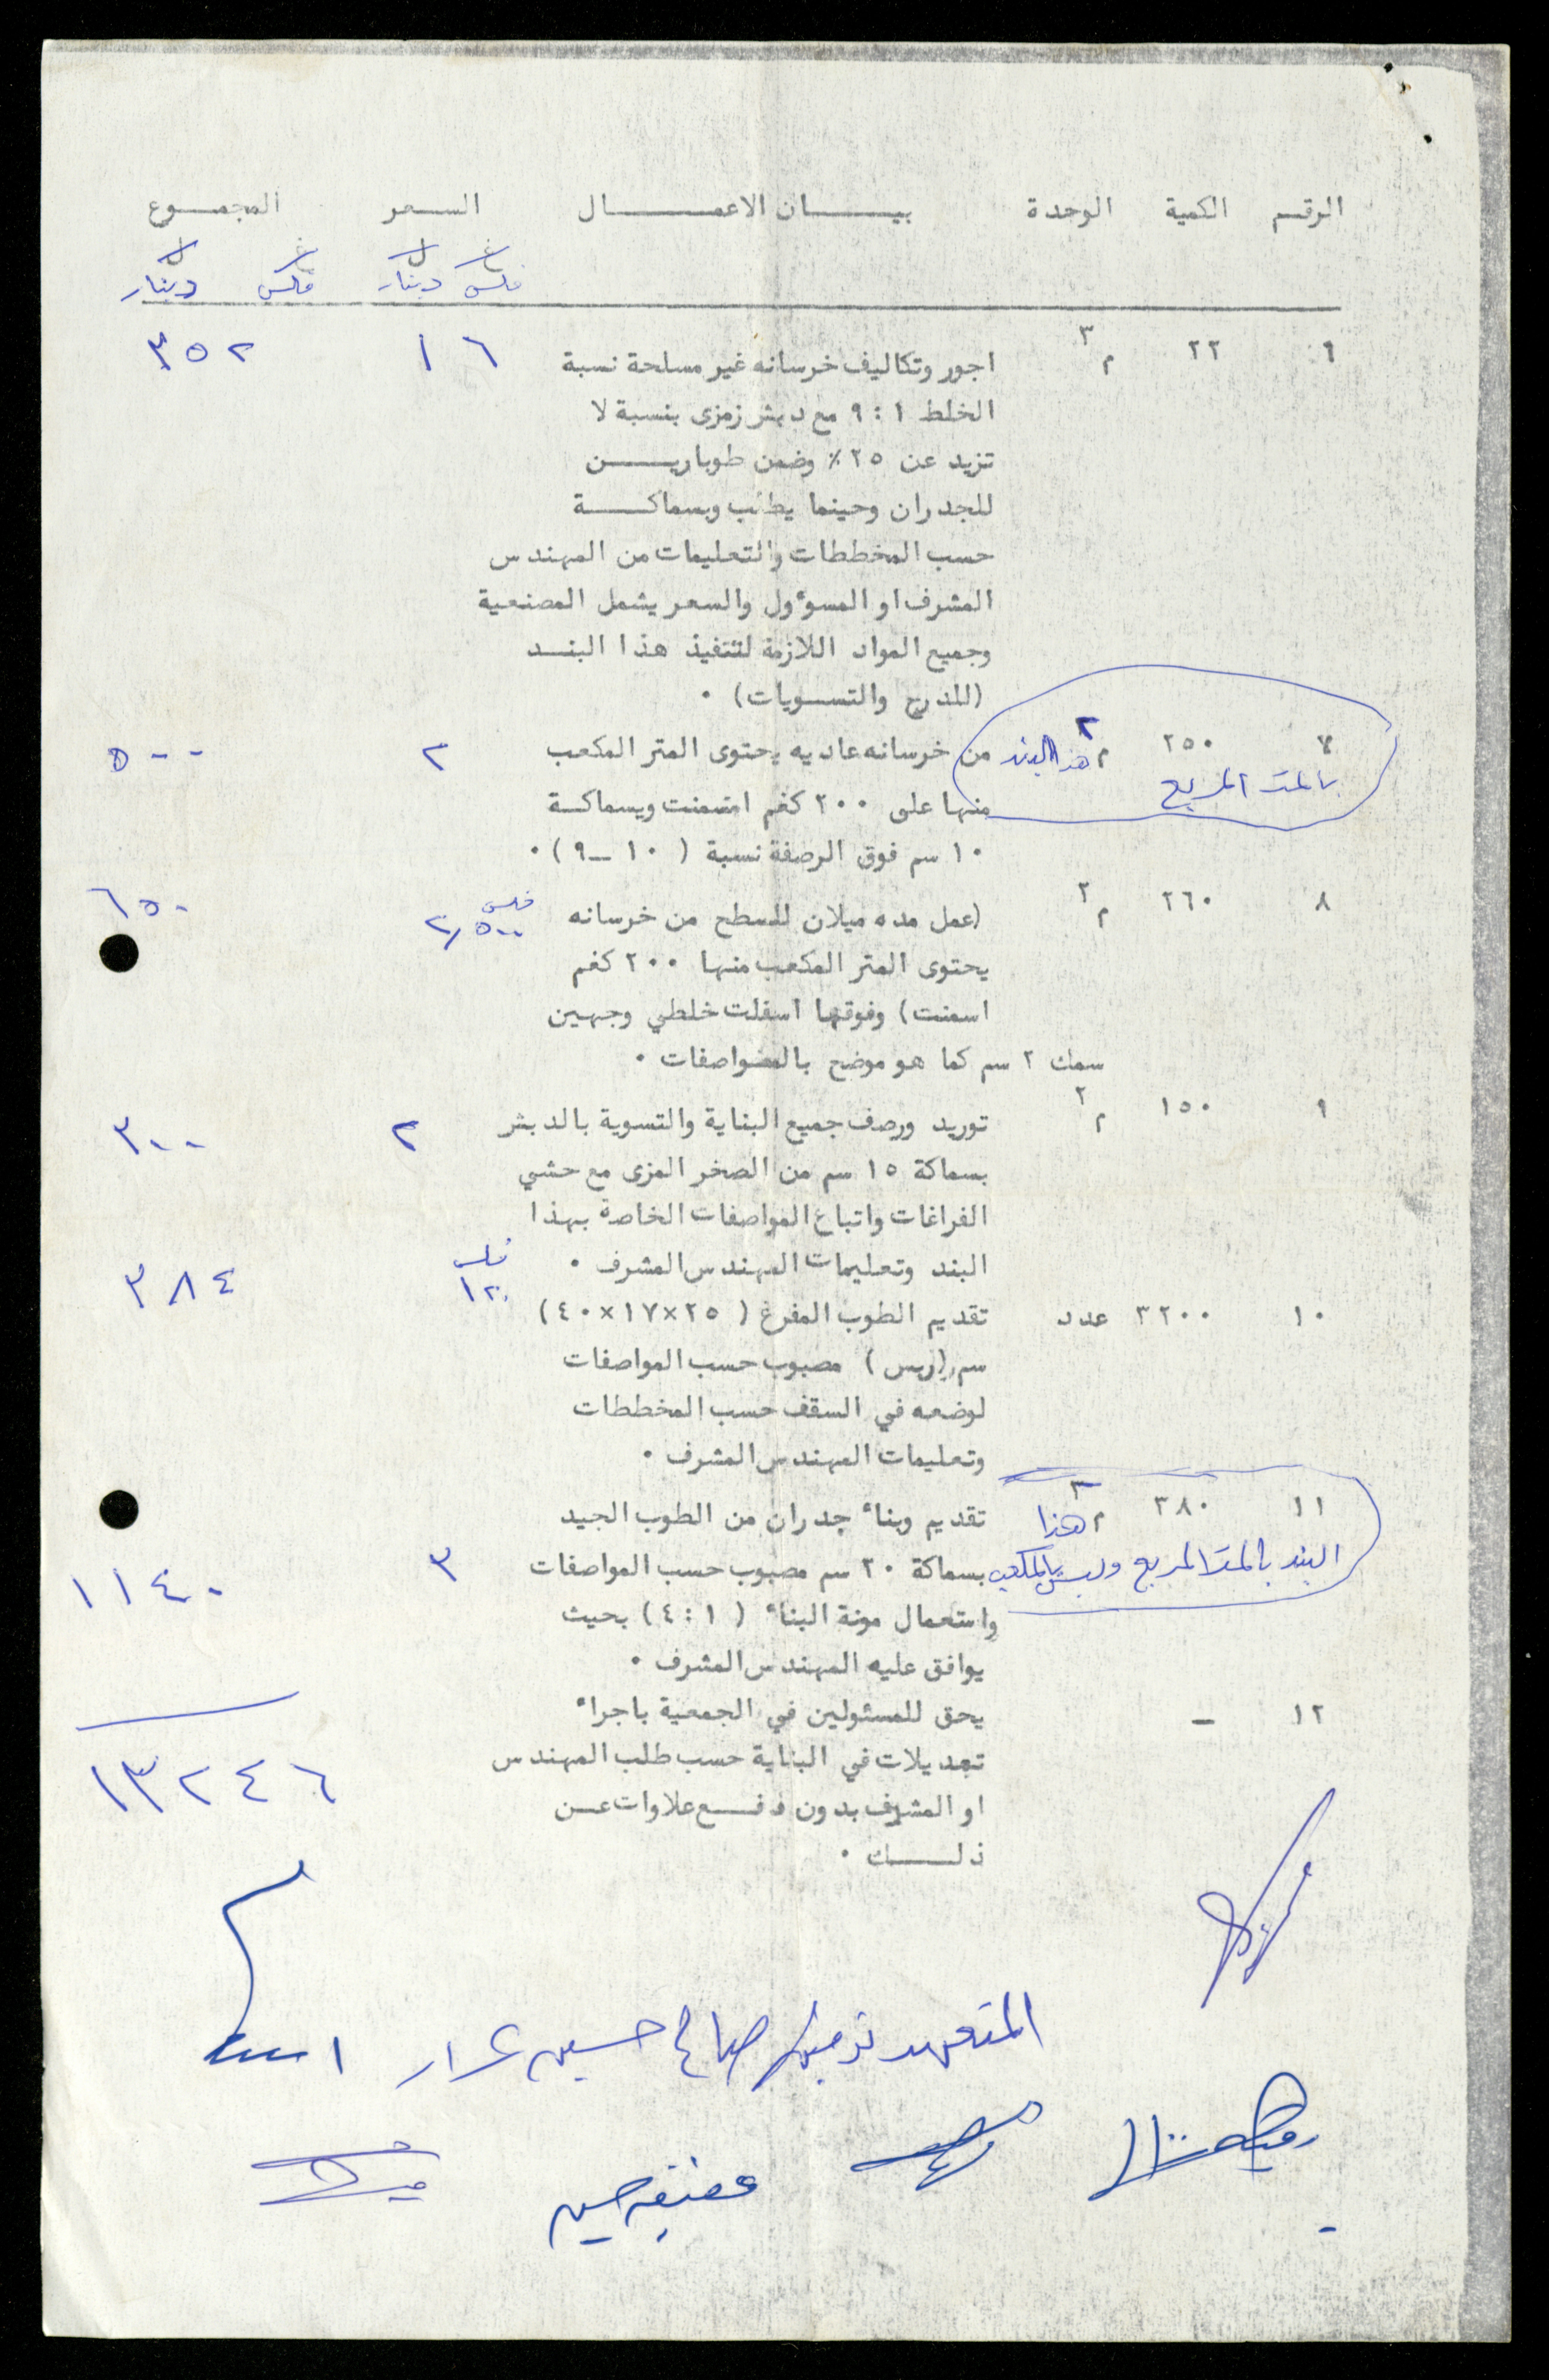 الرقم الكمية الوحدة بيـــان الاعمـــال السعر المجمــوع
فلس دينار فلس دينار
٦ ٢٢ م٣ اجور وتكاليف خرسانه غير مسلحة نسبة ١٦ ٣٥٢
الخلط ١ : ٩ مع دبش زمزى بنسبة لا
تزيد عن ٢٥ ٪ وضمن طوباريـــن
للجدران وحينما يطلب وبسماكـــة
حسب المخططات والتعليمات من المهندس
المشرف او المسوٴول والسعر يشمل المصنعية
وجميع المواد اللازمة لتنفيذ هذا البنــد
(للدرج والتسويات) ٠
٧ ٢٥٠ م٢ هذا البند من خرسانه عاديه يحتوى المتر المكعب ٢ ٥٠٠
بالمتر المربع منها على ٢٠٠ كغم اسمنت وبسماكـة
١٠ سم فوق الرصفة نسبة ( ١٠ ــ ٩ ) ٠
٨ ٢٦٠ م٢ (عمل مده ميلان للسطح من خرسانه فلس ٢,٥٠٠ ٦٥٠
يحتوى المتر المكعب منها ٢٠٠ كغم
اسمنت) وفوقها اسفلت خلطي وجهين
سمك ٢ سم كما هو موضح بالمواصفات ٠
٩ ١٥٠ م٢ توريد ورصف جميع البناية والتسوية بالدبش ٢ ٣٠٠
بسماكة ١٥ سم من الصخر المزى مع حشي
الفراغات واتباع المواصفات الخاصة بهذا
البند وتعليمات المهندس المشرف ٠ فلس
١٠ ٣٢٠٠ عدد تقديم الطوب المفرغ ( ٢٥×١٧×٤٠) ١٢٠ ٣٨٤
سم (ربس) مصبوب حسب المواصفات
لوضعه في السقف حسب المخططات
وتعليمات المهندس المشرف ٠
١١ ٣٨٠ م٣ هذا تقديم وبناء جدران من الطوب الجيد
البند بالمتر المربع وليس بالمكعب بسماكة ٢٠ سم مصبوب حسب المواصفات ٣ ١١٤٠
واستعمال مونة البناء ( ١ : ٤ ) بحيث
يوافق عليه المهندس المشرف ٠
١٢ ــ يحق للمسئولين في الجمعية باجراء
تعديلات في البناية حسب طلب المهندس ١٣٢٤٦
او المشرف بدون دفــع علاوات عــن
ذلـــك ٠
المتعهد صالح حسين